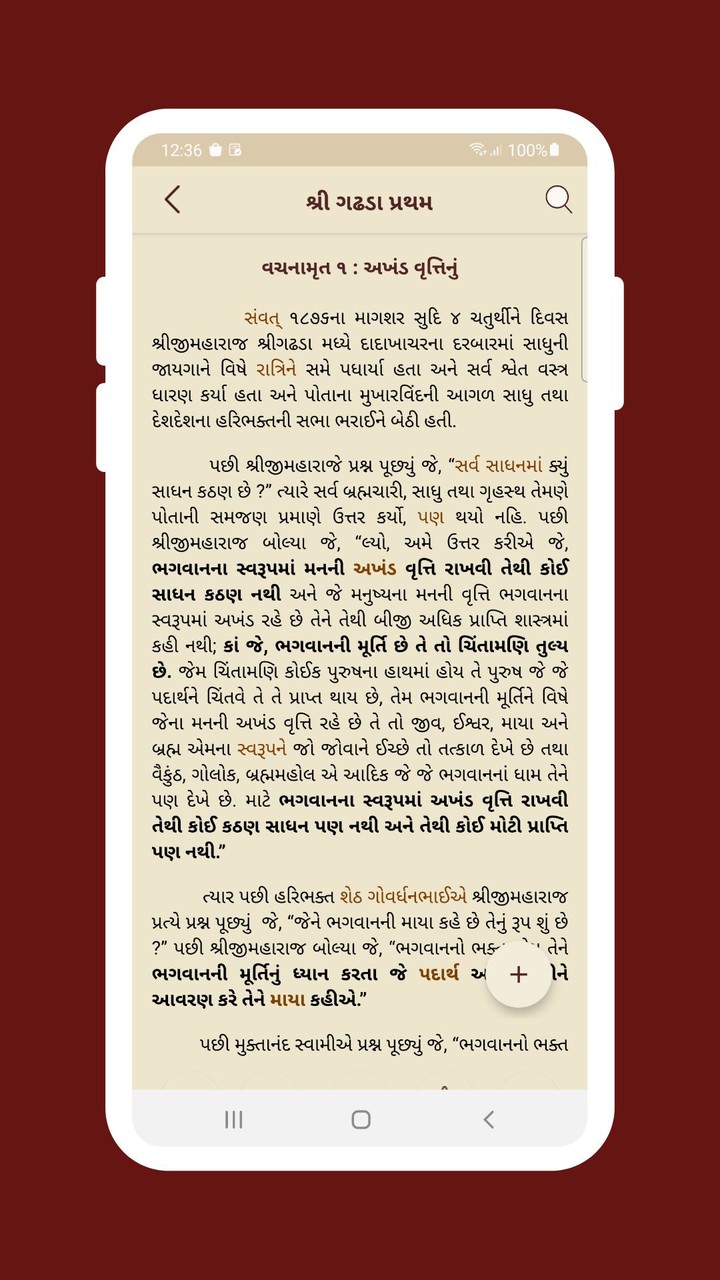 12:36
100%
શ્રી ગઢડા પ્રથમ
વચનામૃત ૧ : અખંડ વૃત્તિનું
સંવત્ ૧૮૭૬ના માગશર સુદિ ૪ ચતુર્થીને દિવસ
શ્રીજીમહારાજ શ્રીગઢડા મધ્યે દાદાખાચરના દરબારમાં સાધુની
જાયગાને વિષે રાત્રિને સમે પધાર્યા હતા અને સર્વ શ્વેત વસ્ત્ર
ધારણ કર્યા હતા અને પોતાના મુખારવિંદની આગળ સાધુ તથા
દેશદેશના હરિભક્તની સભા ભરાઈને બેઠી હતી.
પછી શ્રીજીમહારાજે પ્રશ્ન પૂછ્યું જે, “સર્વ સાધનમાં ક્યું
સાધન કઠણ છે ?” ત્યારે સર્વ બ્રહ્મચારી, સાધુ તથા ગૃહસ્થ તેમણે
પોતાની સમજણ પ્રમાણે ઉત્તર કર્યો, પણ થયો નહિ. પછી
શ્રીજીમહારાજ બોલ્યા જે, “લ્યો, અમે ઉત્તર કરીએ જે,
ભગવાનના સ્વરૂપમાં મનની અખંડ વૃત્તિ રાખવી તેથી કોઈ
સાધન કઠણ નથી અને જે મનુષ્યના મનની વૃત્તિ ભગવાનના
સ્વરૂપમાં અખંડ રહે છે તેને તેથી બીજી અધિક પ્રાપ્તિ શાસ્ત્રમાં
કહી નથી; કાં જે, ભગવાનની મૂર્તિ છે તે તો ચિંતામણિ તુલ્ય
છે. જેમ ચિંતામણિ કોઈક પુરુષના હાથમાં હોય તે પુરુષ જે જે
પદાર્થને ચિંતવે તે તે પ્રાપ્ત થાય છે, તેમ ભગવાનની મૂર્તિને વિષે
જેના મનની અખંડ વૃત્તિ રહે છે તે તો જીવ, ઈશ્વર, માયા અને
બ્રહ્મ એમના સ્વરૂપને જો જોવાને ઈચ્છે તો તત્કાળ દેખે છે તથા
વૈકુંઠ, ગોલોક, બ્રહ્મમહોલ એ આદિક જે જે ભગવાનનાં ધામ તેને
પણ દેખે છે. માટે ભગવાનના સ્વરૂપમાં અખંડ વૃત્તિ રાખવી
તેથી કોઈ કઠણ સાધન પણ નથી અને તેથી કોઈ મોટી પ્રાપ્તિ
પણ નથી.”
ત્યાર પછી હરિભક્ત શેઠ ગોવર્ધનભાઈએ શ્રીજીમહારાજ
પ્રત્યે પ્રશ્ન પૂછ્યું જે, “જેને ભગવાનની માયા કહે છે તેનું રૂપ શું છે
?” પછી શ્રીજીમહારાજ બોલ્યા જે, “ભગવાનનો તેને
ભગવાનની મૂર્તિનું ધ્યાન કરતા જે પદાર્થ
આવરણ કરે તેને માયા કહીએ.”
+
પછી મુક્તાનંદ સ્વામીએ પ્રશ્ન પૂછ્યું જે, “ભગવાનનો ભક્ત